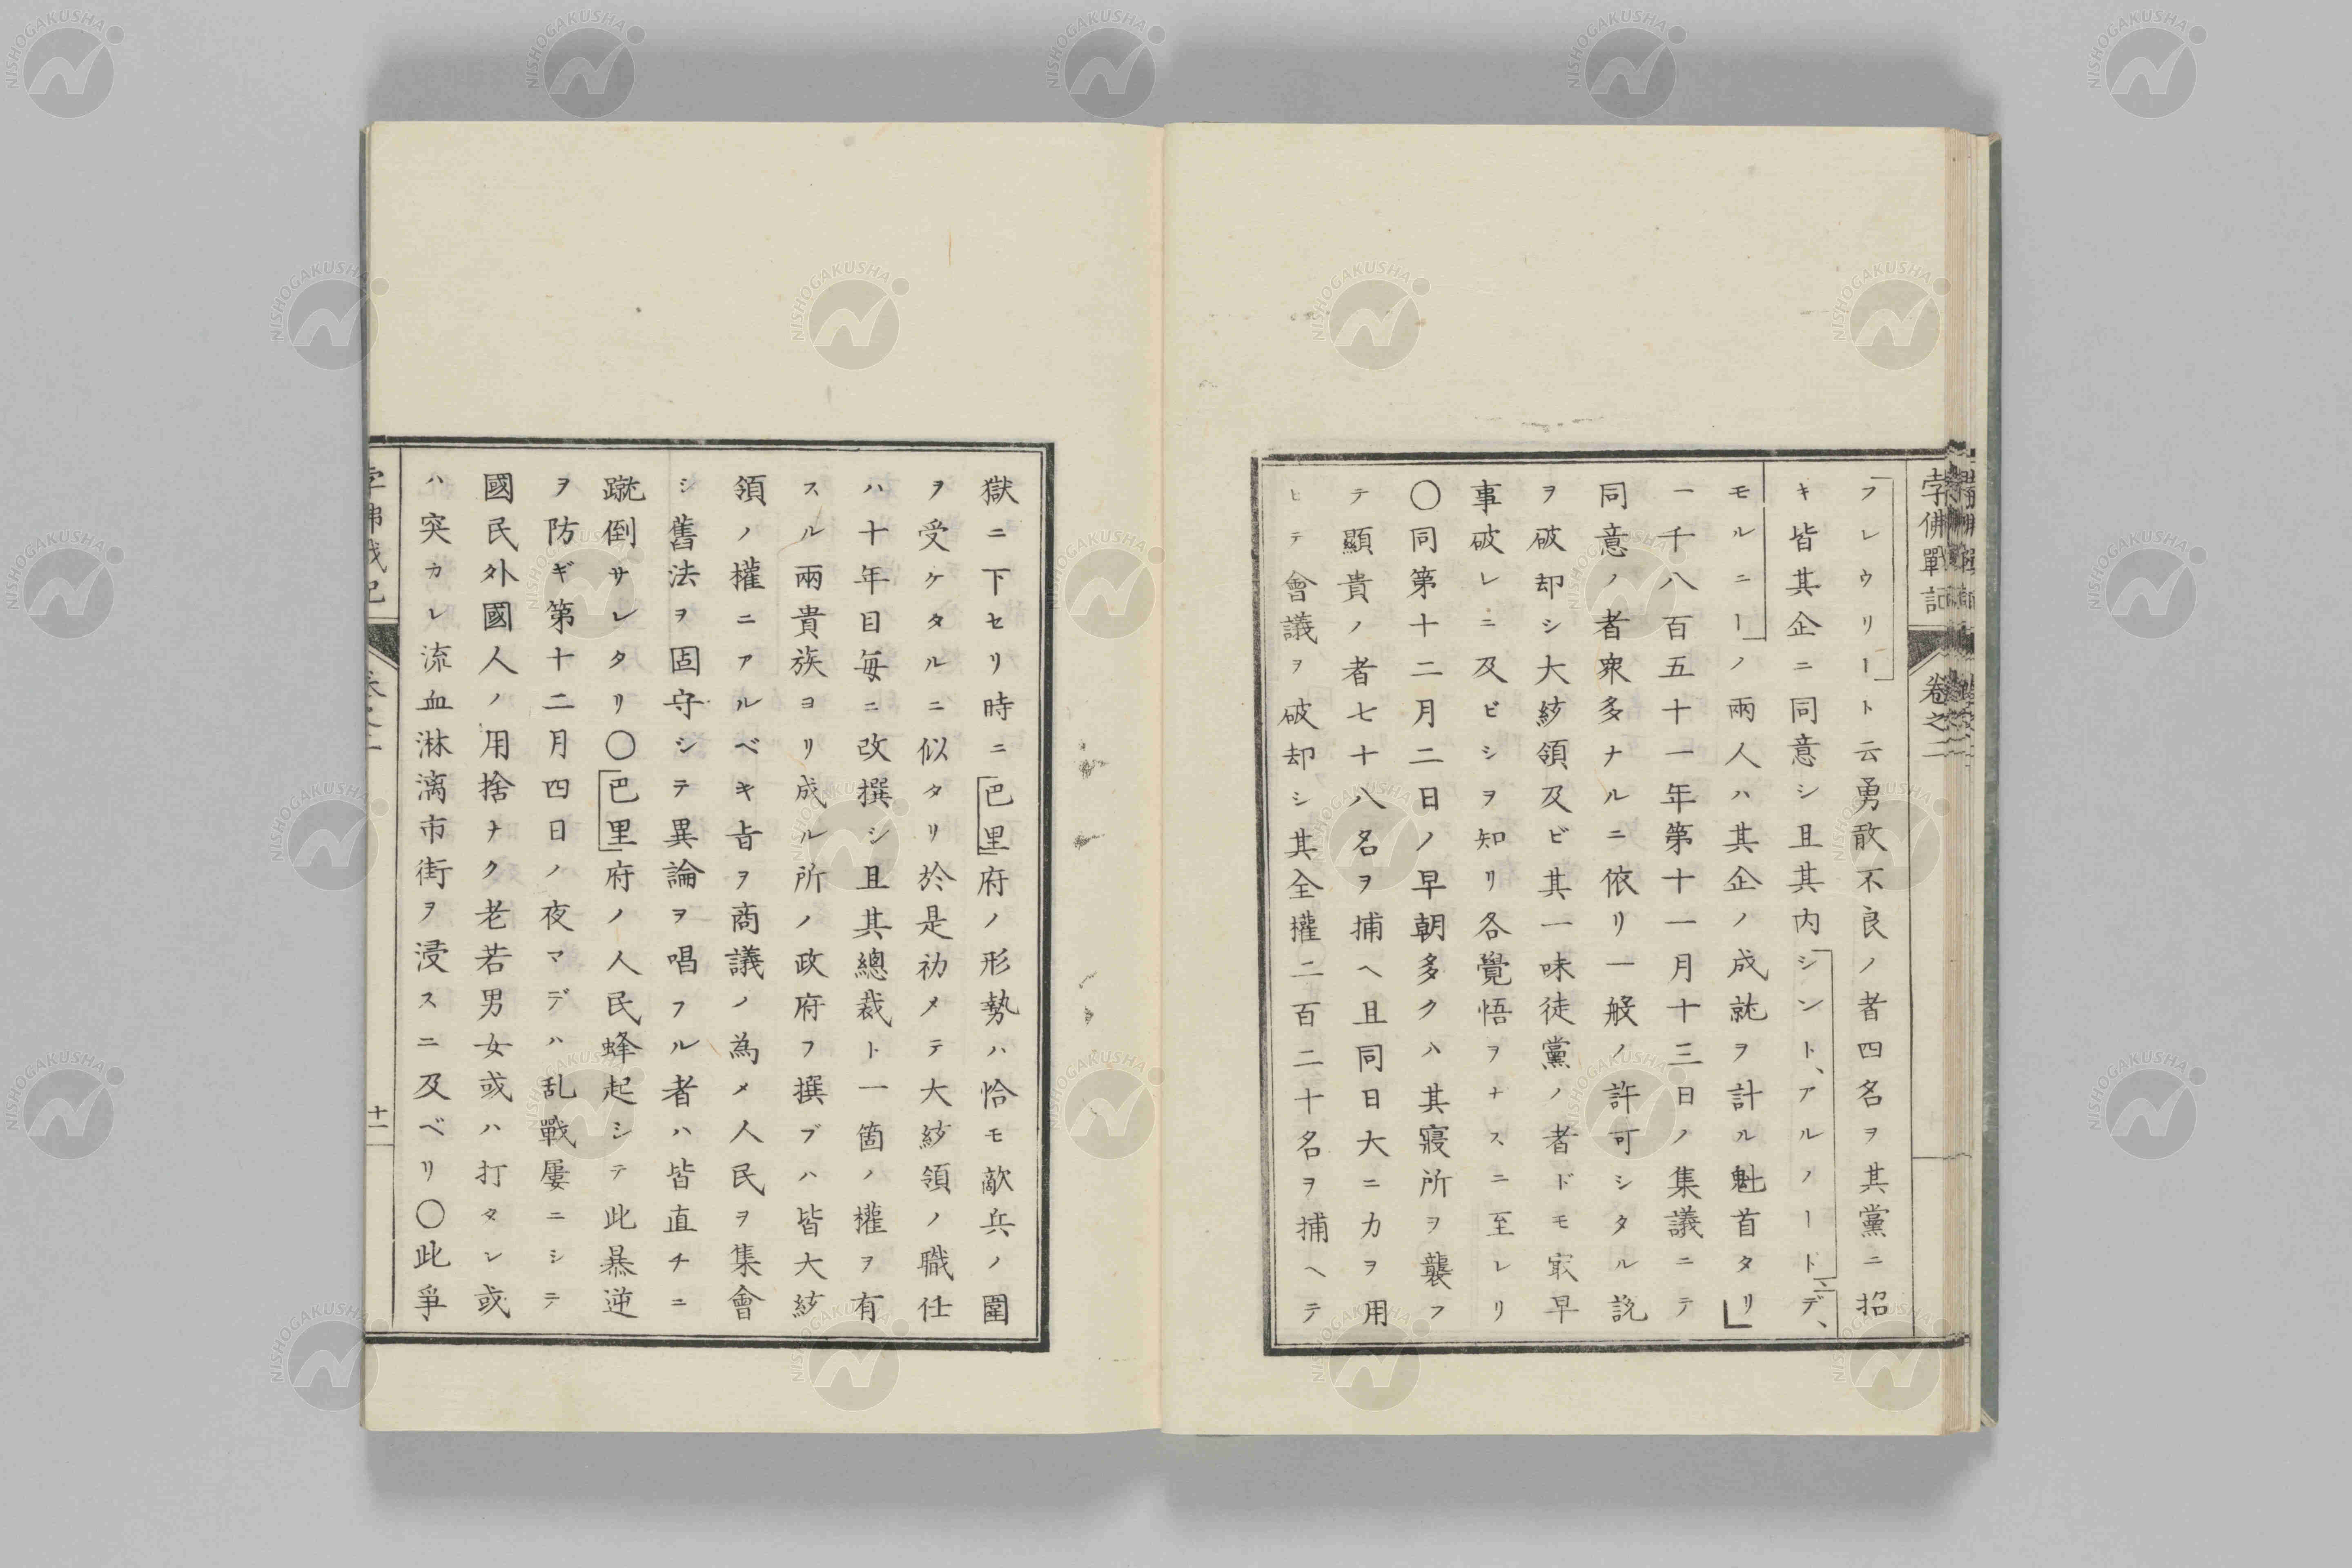 孛佛戰記
卷之二
フレウリート云勇敢不良ノ者四名ヲ其黨ニ招
キ皆其企ニ同意シ且其内シント、アルノートニデ、
モルニーノ兩人ハ其企ノ成就ヲ計ル魁首タリ
一千八百五十一年第十一月十三日ノ集議ニテ
同意ノ者衆多ナルニ依リ一般ノ許可シタル説
ヲ破却シ大統領及ビ其一味徒黨ノ者ドモ㝡早
事破レニ及ビシヲ知リ各覺悟ヲナスニ至レリ
〇同第十二月二日ノ早朝多クハ其寢所ヲ襲フ
テ顯貴ノ者七十八名ヲ捕ヘ且同日大ニカヲ用
ヒテ會議ヲ破却シ其全權二百二十名ヲ捕ヘテ
獄ニ下セリ時ニ巴里府ノ形勢ハ恰モ敵兵ノ圍
ヲ受ケタルニ似タリ於是初メテ大統領ノ職任
ハ十年目毎ニ改撰シ且其總裁ト一箇ノ權ヲ有
スル兩貴族ヨリ成ル所ノ政府フ撰ブハ皆大統
領ノ權ニアルベキ旨ヲ商議ノ為メ人民ヲ集會
シ舊法ヲ固守シテ異論ヲ唱フル者ハ皆直チニ
蹴倒サレタリ〇巴里府ノ人民蜂起シテ此暴逆
ヲ防ギ第十二月四日ノ夜マデハ乱戰屢ニシテ
國民外國人ノ用捨ナク老若男女或ハ打タレ或
ハ突カレ流血淋漓市街ヲ浸スニ及ベリ〇此爭
十一
NISHOGAKUSHA